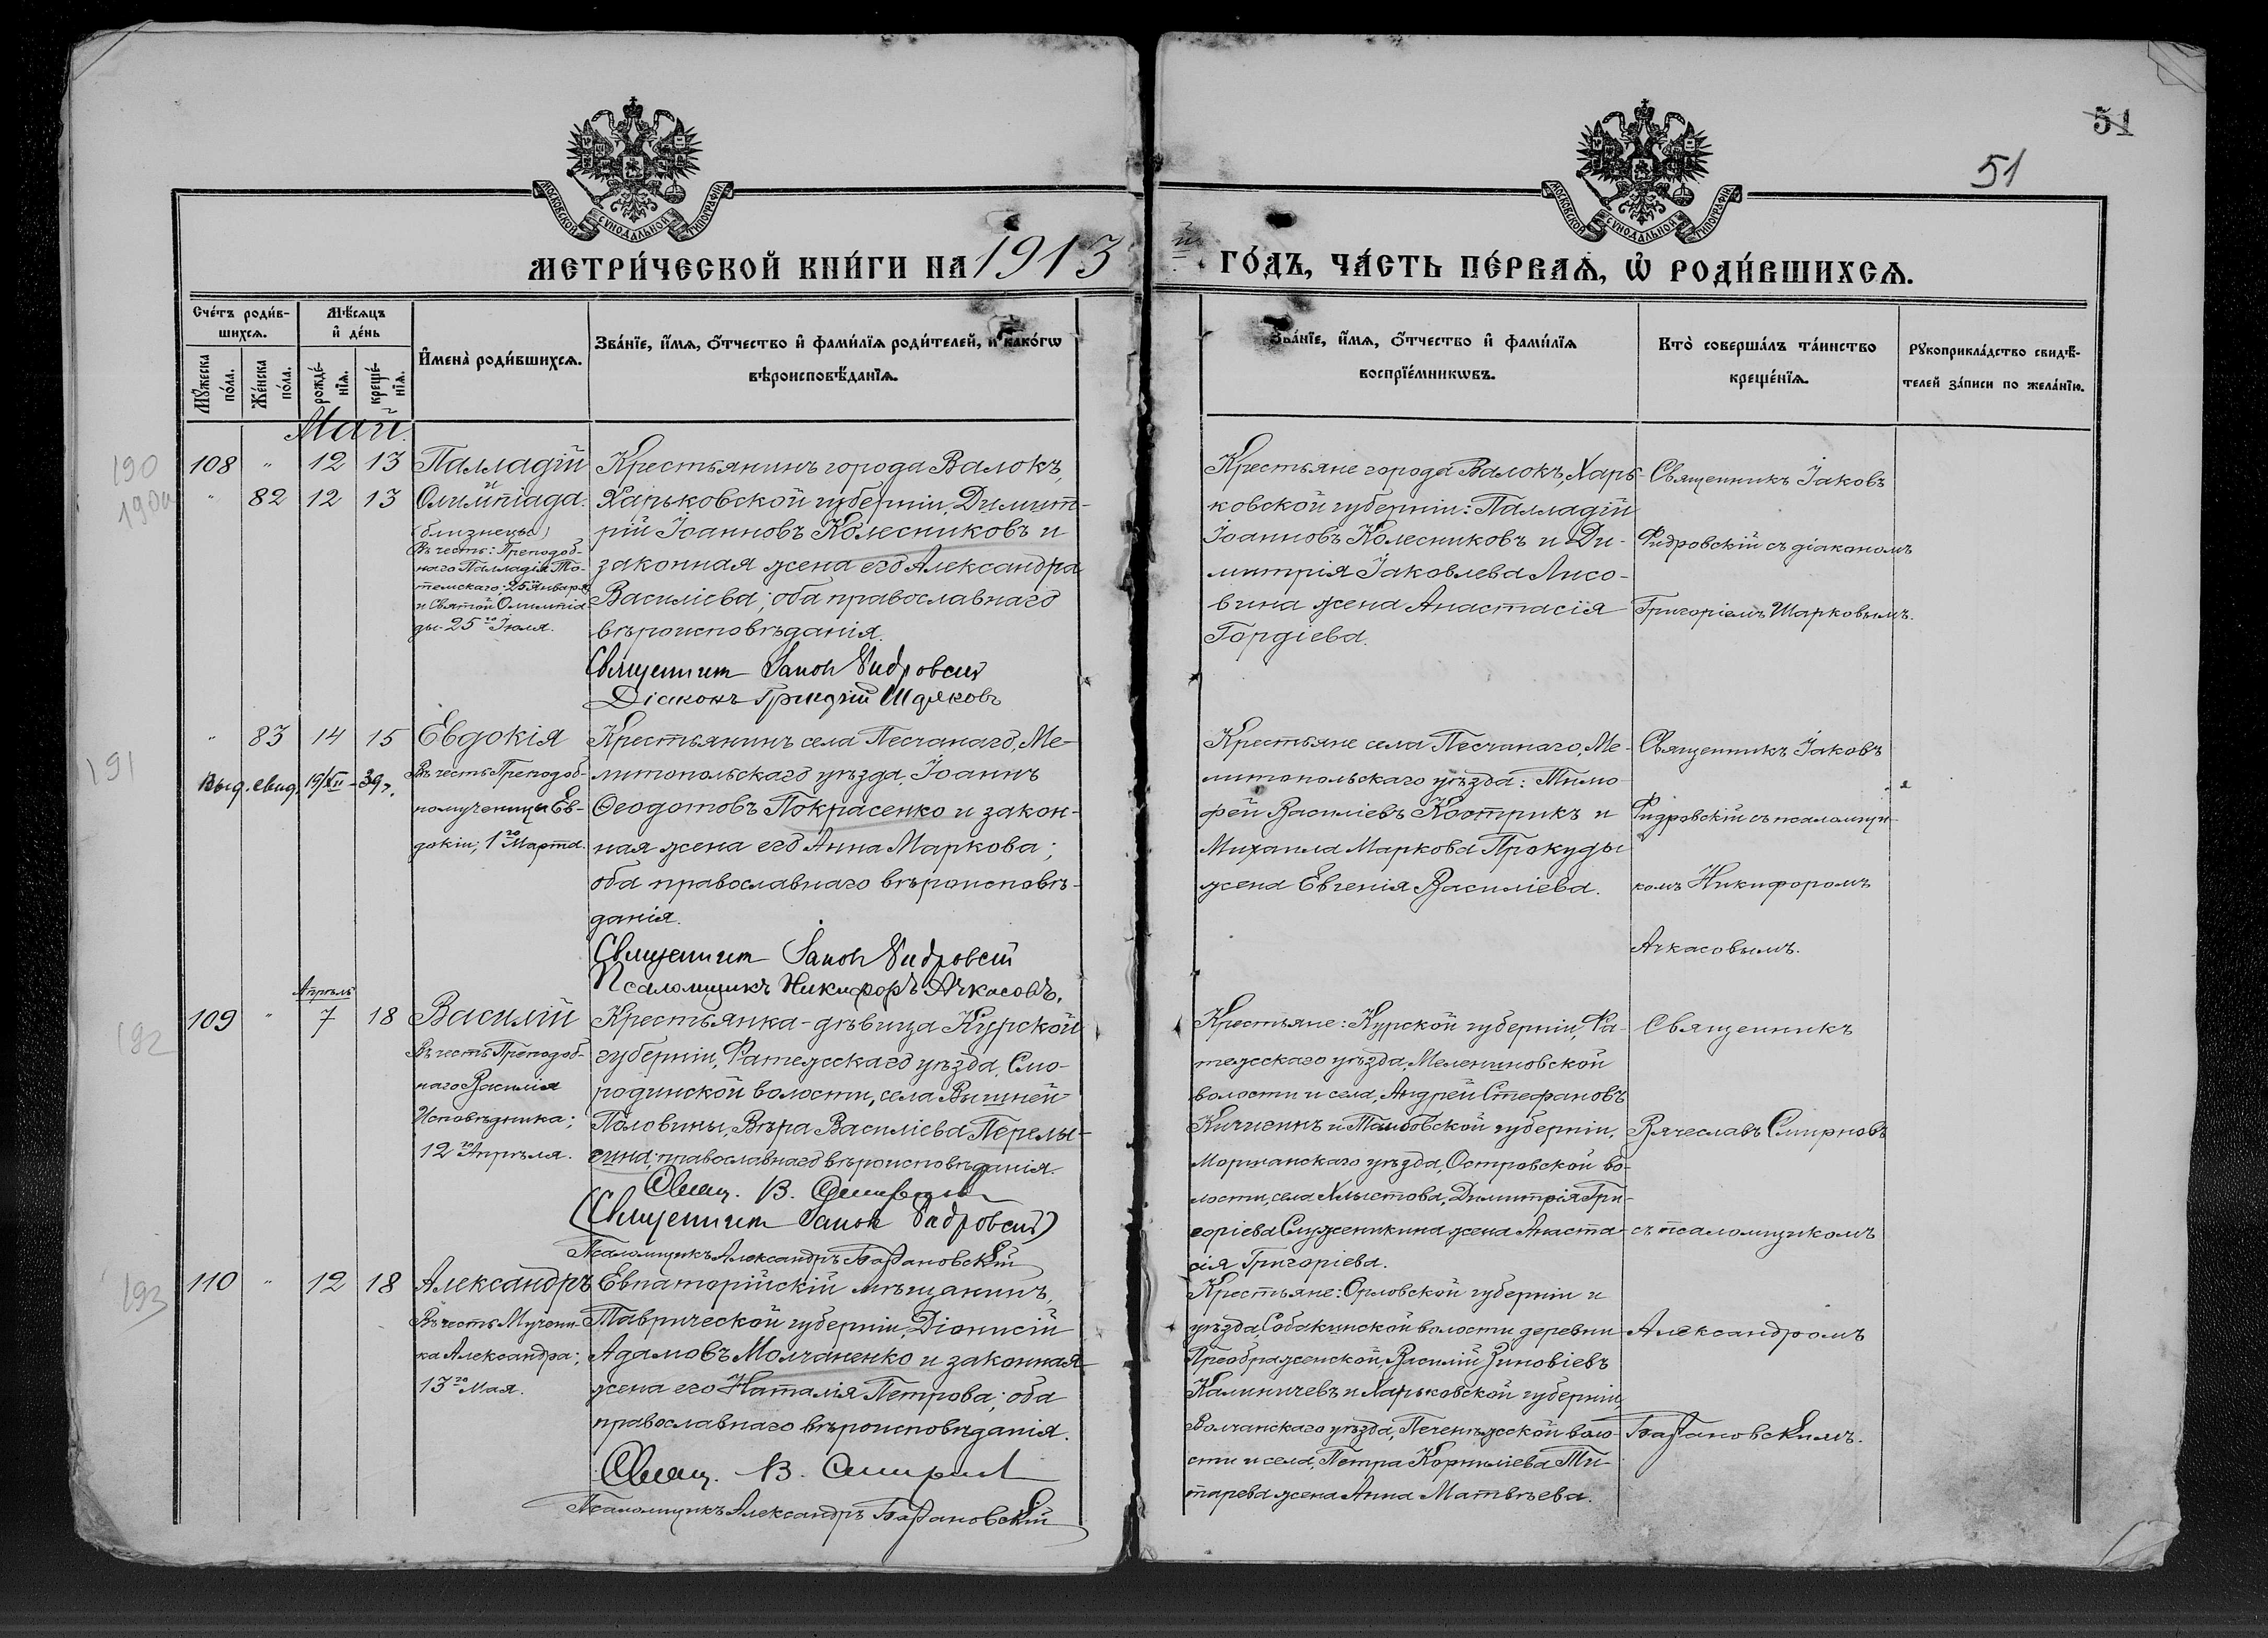 51
51
МОСКОВСКОЙ СѴНОДАЛЬНОЙ ТИПОГРАФІИ
МОСКОВСКОЙ СѴНОДАЛЬНОЙ ТИПОГРАФІИ
МЕТРИ́ЧЕСКОЙ КНИ́ГИ НА 1913 й ГО́ДЪ, ЧА́СТЬ ПЕ́РВАѦ, Ѡ҆ РОДИ́ВШИХСѦ.
Сче́тъ роди́в-
шихсѧ.
Мꙋ́жеска по́ла.
Же́нска по́ла.
Мѣ́сѧцъ
и҆ де́нь
рожде́-
нїѧ.
креще́-
нїѧ.
И҆мена̀ роди́вшихсѧ.
Зва́нїе, и҆́мѧ, ѻ҆́тчество и҆ фами́лїѧ роди́телей, и҆ како́гѡ
вѣроисповѣ́данїѧ.
Зва́нїе, и҆́мѧ, ѻ҆́тчество и҆ фами́лїѧ
воспрїе́мникѡвъ.
Кто̀ соверша́лъ та́инство
креще́нїѧ.
Рꙋкоприкла́дство свидѣ́-
телей за́писи по жела́нїю.
Май.
190
190а
108 " 12 13 Палладій
" 82 12 13 и Олимпіада.
(близнецы)
Въ честь: Преподоб-
наго Палладія То-
темскаго, 25го Января
и Святой Олимпіа
ды. 25го Іюля.
Крестьянинъ города Валокъ,
Харьковской губерніи, Димит-
рій Іоанновъ Колесниковъ и
законная жена его Александра
Василіева; оба православнаго
вѣроисповѣданія.
Священникъ Іаковъ Фидровскій
Діаконъ Григорій Шарковъ
Крестьяне города Валокъ, Харь-
ковской губерніи: Палладій
Іоанновъ Колесниковъ и Ди-
митрія Іаковлева Лисо-
вина жена Анастасія
Гордіева.
Священникъ Іаковъ
Фидровскій съ діакономъ
Григоріемъ Шарковымъ.
191
" 83 14 15 Евдокія
Выд. свид. 19/XII-39 г.
Въ честь Преподоб-
номученицы Ев-
докіи; 1го Марта.
Крестьянинъ села Песчанаго, Ме-
литопольскаго уѣзда, Іоаннъ
Ѳеодотовъ Покрасенко и закон-
ная жена его Анна Маркова;
оба православнаго вѣроисповѣ-
данія.
Священникъ Іаковъ Фидровскій
Псаломщикъ Никифоръ Ачкасовъ.
Крестьяне села Песчанаго, Ме-
литопольскаго уѣзда: Тимо-
фей Василіевъ Кострикъ и
Михаила Маркова Прокуды
жена Евгенія Василіева.
Священникъ Іаковъ
Фидровскій съ псаломщи-
комъ Никифоромъ
Ачкасовымъ.
192
Апрѣль
109 " 7 18 Василій
Въ честь Преподоб-
наго Василія
Исповѣдника;
12го Апрѣля.
Крестьянка-дѣвица Курской
губерніи, Фатежскаго уѣзда, Смо-
родинской волости, села Вышней
Половины, Вѣра Василіева Перелы-
гина, православнаго вѣроисповѣданія.
Свящ. В. Смирновъ
(Священникъ Іаковъ Фидровскій)
Псаломщикъ Александръ Базановскій
Крестьяне: Курской губерніи, Фа-
тежскаго уѣзда, Мелениновской
волости и села, Андрей Стефановъ
и Тамбовской губерніи,
Моршанскаго уѣзда, Островской во-
лости, села Хлыстова, Димитрія Гри-
горіева Служенкина жена Анаста-
сія Григоріева.
Священникъ
Вячеславъ Смирновъ
съ псаломщикомъ
193
110 " 12 18 Александръ
Въ честь Мучени-
ка Александра;
13го Мая.
Евпаторійскій мѣщанинъ,
Таврической губерніи, Діонисій
Адамовъ Молчаненко и законная
жена его Наталія Петрова; оба
православнаго вѣроисповѣданія.
Свящ. В. Смирновъ
Псаломщикъ Александръ Базановскій
Крестьяне: Орловской губерніи и
уѣзда, Собакинской волости деревни
Преображенской, Василій Зиновіевъ
Калиничевъ и Харьковской губерніи,
Волчанскаго уѣзда, Печенѣжской воло-
сти и села, Петра Корниліева Ти-
тарева жена Анна Матвѣева.
Александромъ
Базановскимъ.